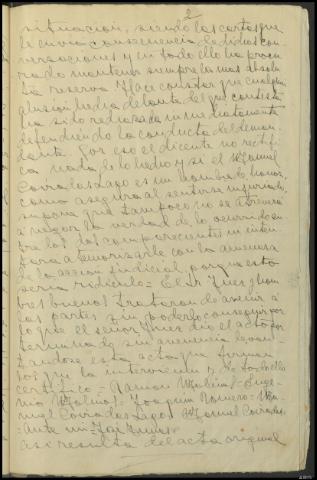 2
situacion, siendo las cartas que
le envio consecuencia de dichas con
versaciones y en todo ello ha procu
rado mantener siempre la mas absolu
ta reserva. Hace constar que cualquier
alusion hecha delante del que contesta
ha sido rechazada inmediatamente
defendiendo la conducta del deman
dante. Por eso el dicente no rectifi
ca nada de lo hecho y si el Manuel
Corrado Lago es un hombre de honor,
como asegura al sentirse injuriado,
supone que tampoco no se atrevera
a negar la verdad de lo ocurrido en
tre los dos comparecientes ni inten
tara atemorizarle con la amenaza
de la accion judicial, porque esto
seria ridiculo = El Sr Juez y hom
bres buenos trataron de avenir a
las partes sin poderlo conseguir por
lo que el señor Juez dio el acto por
terminado sin avenencia levan
tandose esta acta que firman
los que la intervienen y de todo ello
certifico = Ramon = Euge
nio = Joaquin Romero = Ma
nuel Corrado Lago = Manuel
= Ante mi = José
Asi resulta del acta original